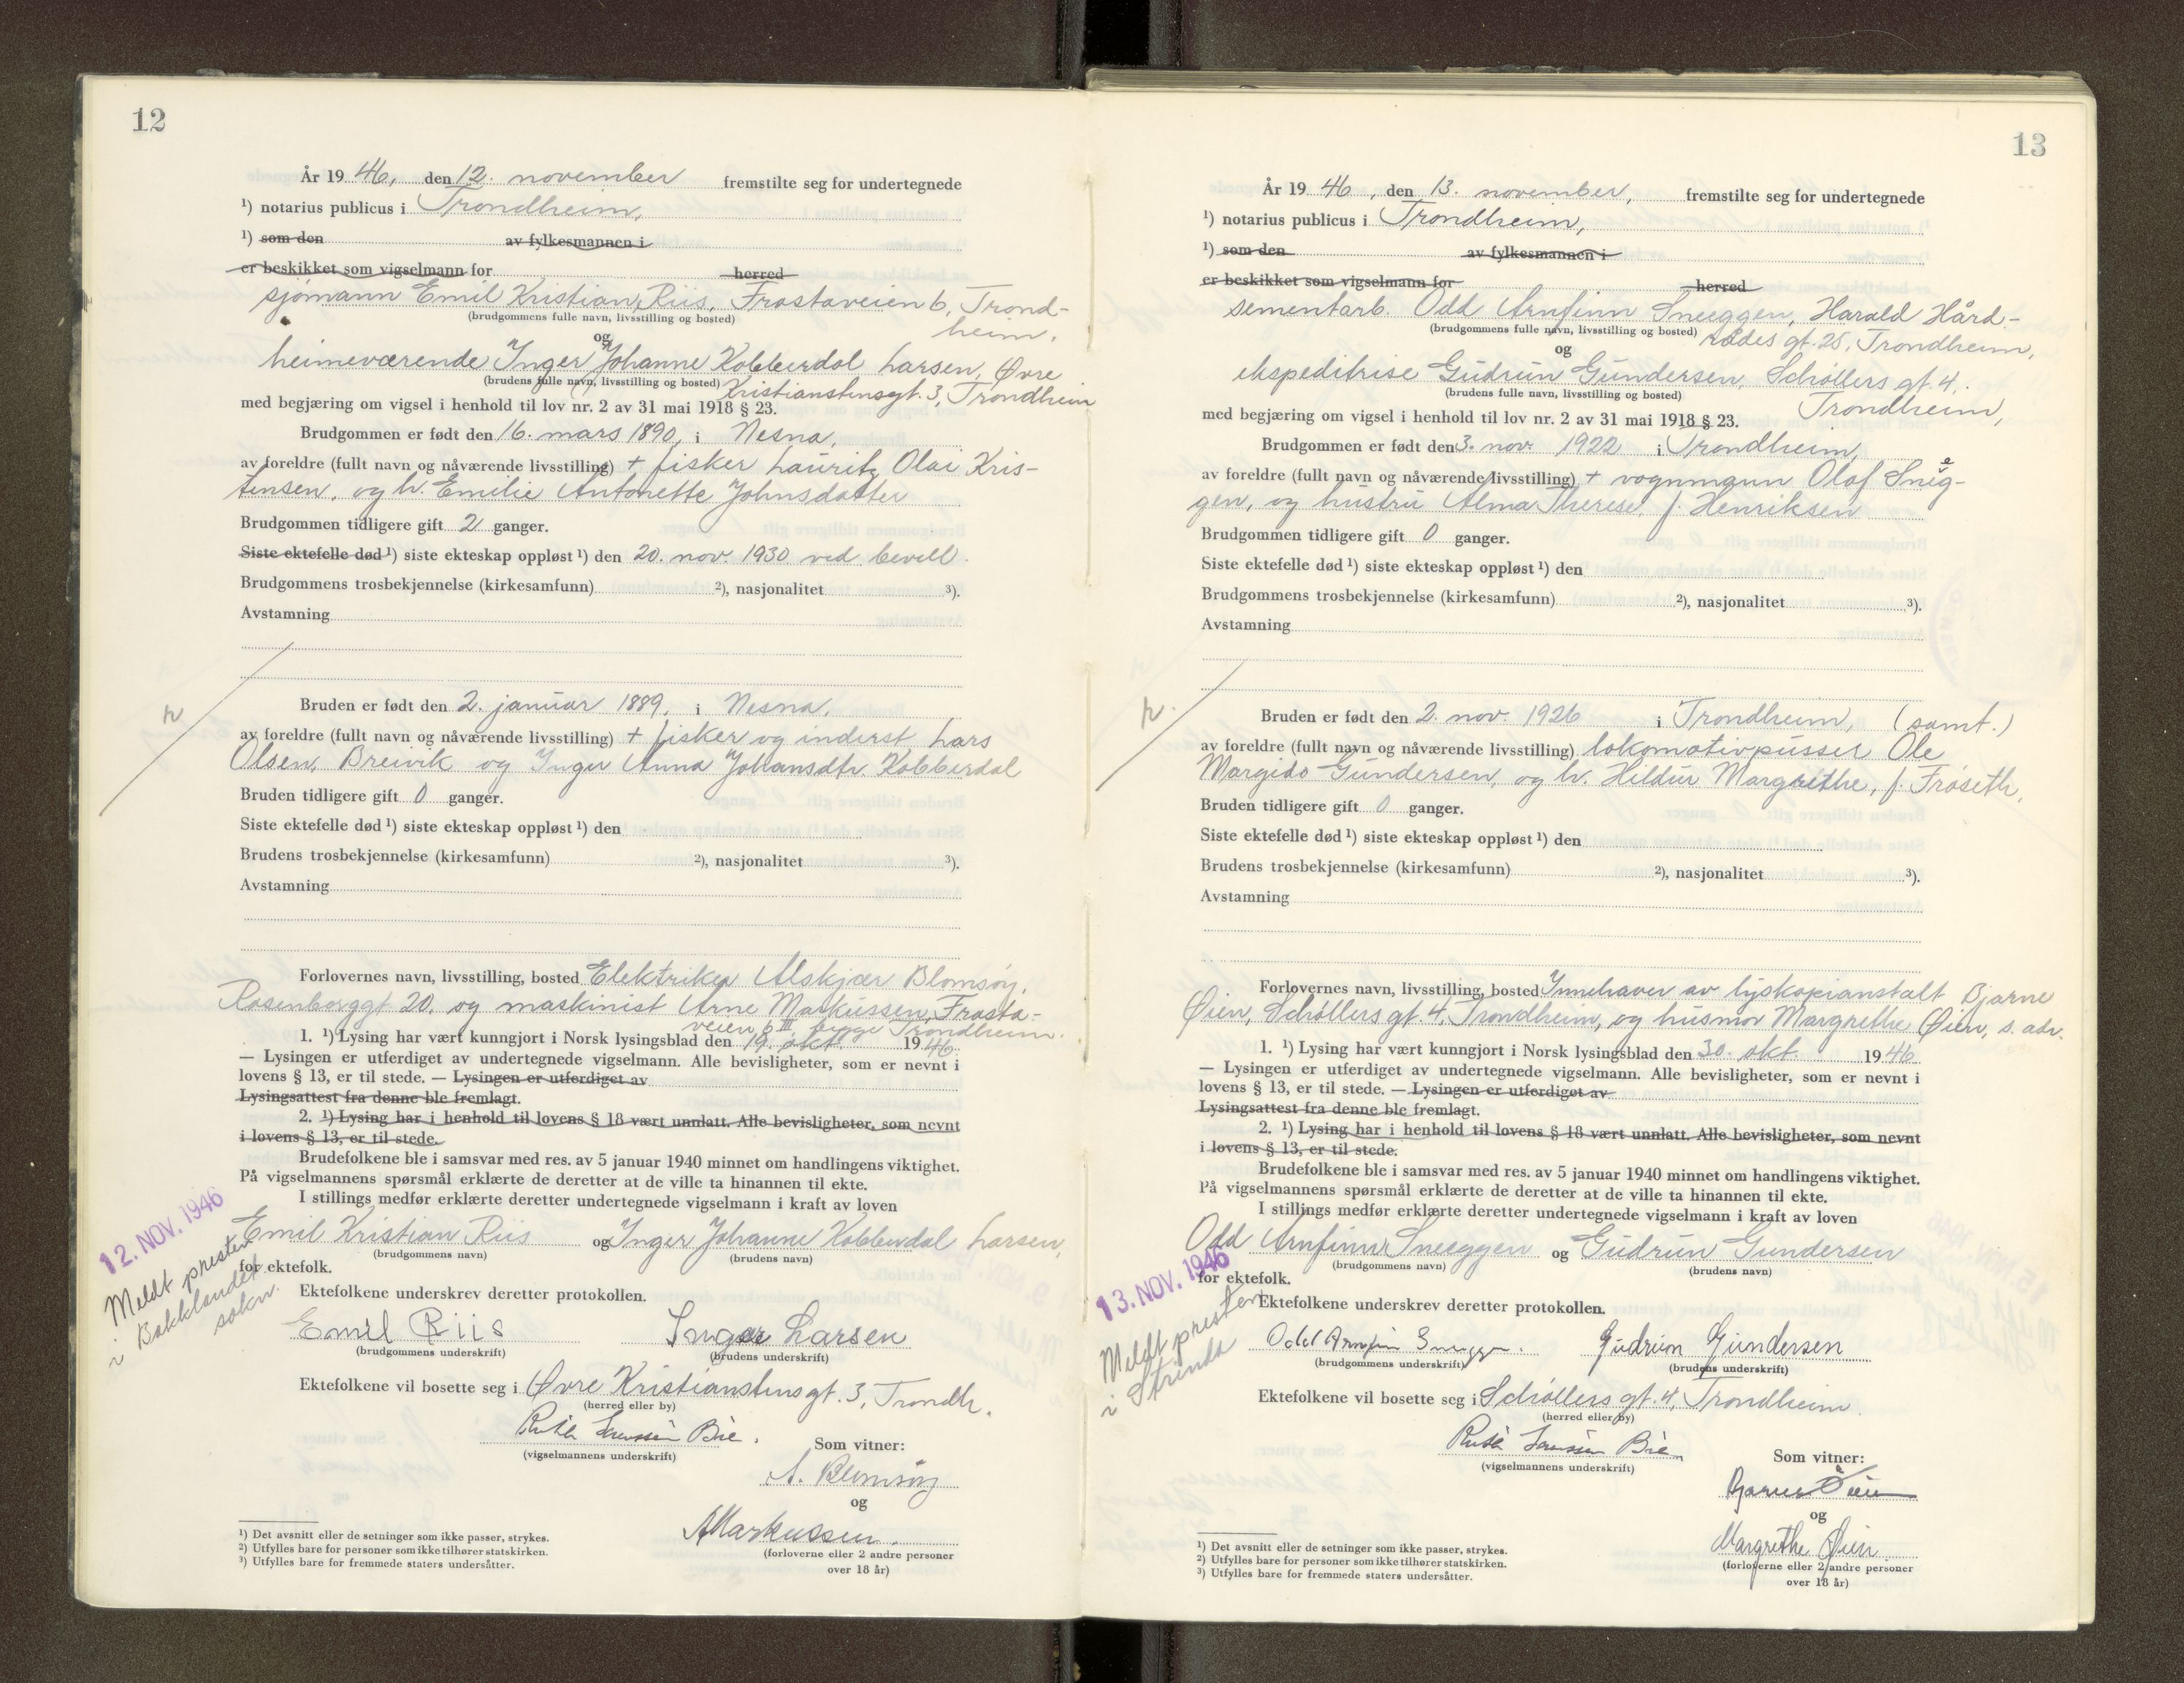 12
År 19 46, den 12. november fremstilte seg for undertegnede
¹) notarius publicus i Trondheim,
¹) som den av fylkesmannen i
er beskikket som vigselmann for herred
sjømann Emil Kristian Riis, Frostaveien 6, Trond-
(brudgommens fulle navn, livsstilling og bosted) heim.
og
heimeværende Inger Johanne Kobberdal Larsen, Øvre
(brudens fulle navn, livsstilling og bosted) Kristianstensgt. 3, Trondheim
med begjæring om vigsel i henhold til lov nr. 2 av 31 mai 1918 § 23.
Brudgommen er født den 16. mars 1890, i Nesna,
av foreldre (fullt navn og nåværende livsstilling) + fisker Lauritz Olai Kris-
tensen, og h. Emilie Antonette Johnsdatter
Brudgommen tidligere gift 2 ganger.
Siste ektefelle død ¹) siste ekteskap oppløst ¹) den 20. nov. 1930 ved bevill.
Brudgommens trosbekjennelse (kirkesamfunn) ²), nasjonalitet ³).
Avstamning
Bruden er født den 2. januar 1889, i Nesna,
av foreldre (fullt navn og nåværende livsstilling) + fisker og inderst Lars
Olsen Breivik og Inger Anna Johansdtr. Kobberdal
Bruden tidligere gift 0 ganger.
Siste ektefelle død ¹) siste ekteskap oppløst ¹) den
Brudens trosbekjennelse (kirkesamfunn) ²), nasjonalitet ³).
Avstamning
Forlovernes navn, livsstilling, bosted Elektriker Alskjær Blomsøy,
Rosenborggt 20, og maskinist Arne Markussen, Frosta-
veien 6 III, begge Trondheim.
1. ¹) Lysing har vært kunngjort i Norsk lysingsblad den 19. okt. 1946
— Lysingen er utferdiget av undertegnede vigselmann. Alle bevisligheter, som er nevnt i
lovens § 13, er til stede. — Lysingen er utferdiget av
Lysingsattest fra denne ble fremlagt.
2. ¹) Lysing har i henhold til lovens § 18 vært unnlatt. Alle bevisligheter, som nevnt
i lovens § 13, er til stede.
Brudefolkene ble i samsvar med res. av 5 januar 1940 minnet om handlingens viktighet.
På vigselmannens spørsmål erklærte de deretter at de ville ta hinannen til ekte.
I stillings medfør erklærte deretter undertegnede vigselmann i kraft av loven
12. NOV. 1946
Emil Kristian Riis og Inger Johanne Kobberdal Larsen,
(brudgommens navn) (brudens navn)
for ektefolk.
Meldt presten
i Bakklandet
sokn.
Ektefolkene underskrev deretter protokollen.
Emil Riis Inger Larsen
(brudgommens underskrift) (brudens underskrift)
Ektefolkene vil bosette seg i Øvre Kristianstensgt. 3, Trondh.
(herred eller by)
Ruth Bie.
(vigselmannens underskrift)
Som vitner:
A. Blomsøy
og
AMarkussen.
(forloverne eller 2 andre personer
over 18 år)
¹) Det avsnitt eller de setninger som ikke passer, strykes.
²) Utfylles bare for personer som ikke tilhører statskirken.
³) Utfylles bare for fremmede staters undersåtter.
13
År 19 46, den 13. november, fremstilte seg for undertegnede
¹) notarius publicus i Trondheim,
¹) som den av fylkesmannen i
er beskikket som vigselmann for herred
sementarb. Odd Arnfinn Sneeggen, Harald Hård-
(brudgommens fulle navn, livsstilling og bosted) rådes gt. 25, Trondheim,
og
ekspeditrise Gudrun Gundersen, Schøllers gt. 4,
(brudens fulle navn, livsstilling og bosted)
Trondheim,
med begjæring om vigsel i henhold til lov nr. 2 av 31 mai 1918 § 23.
Brudgommen er født den 3. nov. 1922 i Trondheim,
av foreldre (fullt navn og nåværende livsstilling) + vognmann Olaf Sneg-
gen, og hustru Alma Therese, f. Henriksen
Brudgommen tidligere gift 0 ganger.
Siste ektefelle død ¹) siste ekteskap oppløst ¹) den
Brudgommens trosbekjennelse (kirkesamfunn) ²), nasjonalitet ³).
Avstamning
Bruden er født den 2. nov. 1926 i Trondheim, (samt.)
av foreldre (fullt navn og nåværende livsstilling) lokomotivpusser Ole
Margido Gundersen, og h. Hildur Margrethe, f. Frøseth,
Bruden tidligere gift 0 ganger.
Siste ektefelle død ¹) siste ekteskap oppløst ¹) den
Brudens trosbekjennelse (kirkesamfunn) ²), nasjonalitet ³).
Avstamning
Forlovernes navn, livsstilling, bosted Innehaver av lyskopianstalt Bjarne
Øien, Schøllers gt. 4, Trondheim, og husmor Margrethe Øien, s. adr.
1. ¹) Lysing har vært kunngjort i Norsk lysingsblad den 30. okt. 1946
— Lysingen er utferdiget av undertegnede vigselmann. Alle bevisligheter, som er nevnt i
lovens § 13, er til stede. — Lysingen er utferdiget av
Lysingsattest fra denne ble fremlagt.
2. ¹) Lysing har i henhold til lovens § 18 vært unnlatt. Alle bevisligheter, som nevnt
i lovens § 13, er til stede.
Brudefolkene ble i samsvar med res. av 5 januar 1940 minnet om handlingens viktighet.
På vigselmannens spørsmål erklærte de deretter at de ville ta hinannen til ekte.
I stillings medfør erklærte deretter undertegnede vigselmann i kraft av loven
Odd Arnfinn Sneeggen og Gudrun Gundersen
(brudgommens navn) (brudens navn)
13. NOV. 1946
for ektefolk.
Meldt presten
i Strinda
Ektefolkene underskrev deretter protokollen.
Odd Arnfinn Sneeggen. Gudrun Gundersen
(brudgommens underskrift) (brudens underskrift)
Ektefolkene vil bosette seg i Schøllers gt. 4, Trondheim.
(herred eller by)
Ruth Bie
(vigselmannens underskrift)
Som vitner:
Bjarne Øien
og
Margrethe Øien
(forloverne eller 2 andre personer
over 18 år)
¹) Det avsnitt eller de setninger som ikke passer, strykes.
²) Utfylles bare for personer som ikke tilhører statskirken.
³) Utfylles bare for fremmede staters undersåtter.